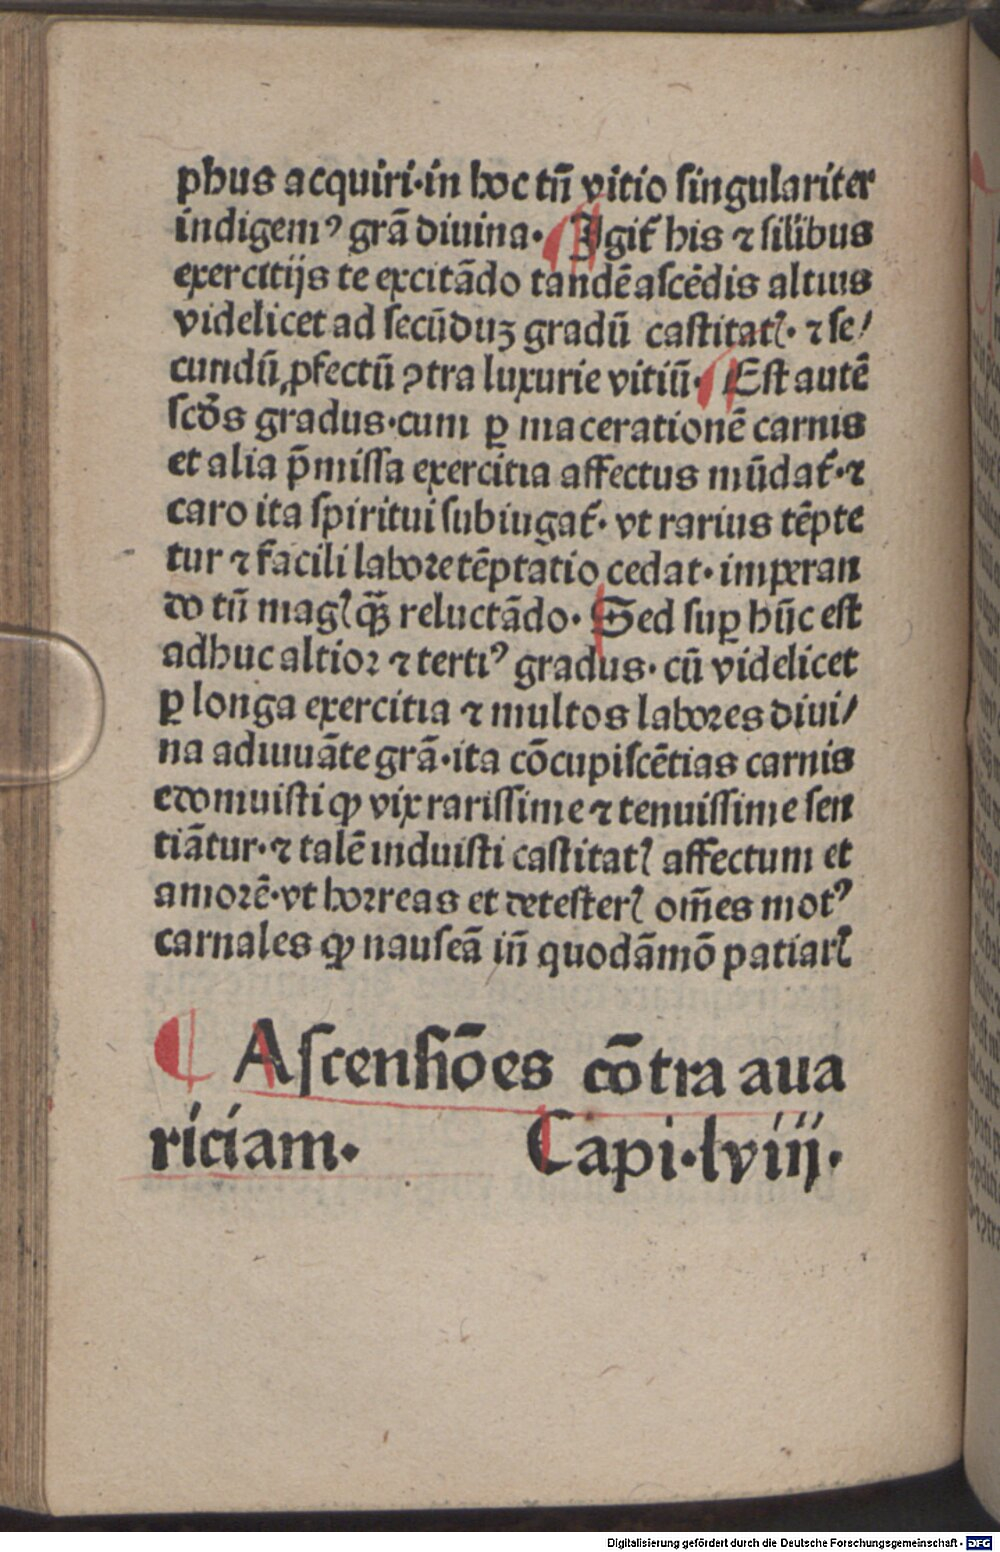 phus acquiri·in hoc tñ vitio ſingulariter
indigemꝰ grã diuina· Igit̃ his ⁊ ſilibus
exercitijs te excitãdo tandẽ aſcẽdis altius
videlicet ad ſecũduꝫ gradũ caſtitatꝭ· ⁊ ſe/
cundũ ꝓfectũ ꝯtra luxurie vitiũ· Eſt autẽ
ſcd̃s gradus·cum ꝑ macerationẽ carnis
et alia p̃miſſa exercitia affectus mũdat̃·⁊
caro ita ſpiritui ſubiugat̃· vt rarius tẽpte
tur ⁊ facili labore tẽptatio cedat· imperan
do tñ magꝭ q̃ꝫ reluctãdo· Sed ſuꝑ hũc eſt
adhuc altior ⁊ tertiꝰ gradus· cũ videlicet
ꝑ longa exercitia ⁊ multos labores diui/
na adiuuãte grã·ita cõcupiſcẽtias carnis
edomuiſti ꝙ vix rariſſime ⁊ tenuiſſime ſen
tiãtur·⁊ talẽ induiſti caſtitatꝭ affectum et
amorẽ·vt horreas et deteſterꝭ om̃es motꝰ
carnales ꝙ nauſeã iñ quodãmõ patiarꝭ
¶ Aſcenſiões cõtra aua
riciam· Capi·lviij·
Digitalisierung gefördert durch die Deutsche Forschungsgemeinschaft - DFG